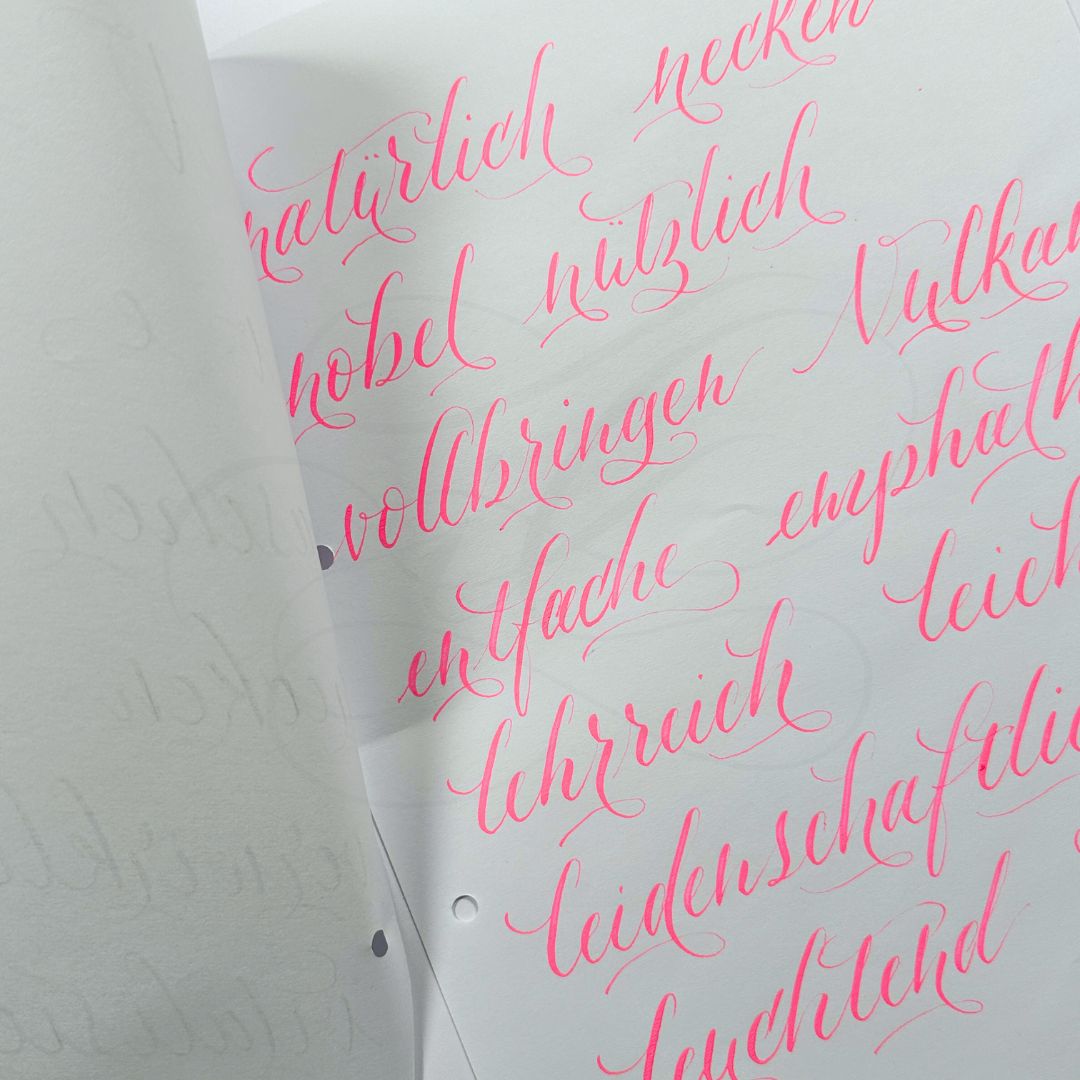 natürlich necken
nobel nützlich
vollbringen Vulkan
entfache emphath
lehrreich leich
leidenschaftlic
leuchtend